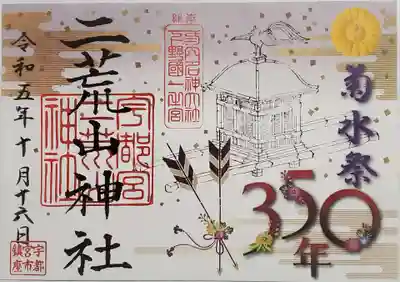 菊水祭
350年
式内名神大社
下野國一之宮
二荒山神社
宇都宮
二荒山
神社
令和五年十月十六日
宇都
宮市
鎮座